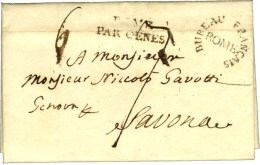 ROME
PAR GÊNES
BUREAU FRANÇAIS
ROME
A Monsieur
Monsieur Niccolo Gavotti
Genova
Savona